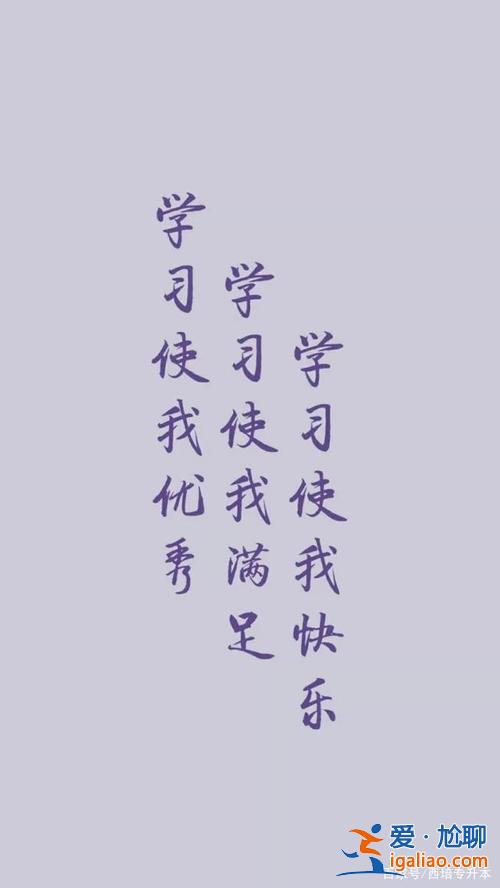 学习使我优秀
学习使我满足
学习使我快乐
爱·尬聊
igaliao.com
百家号/西培专升本